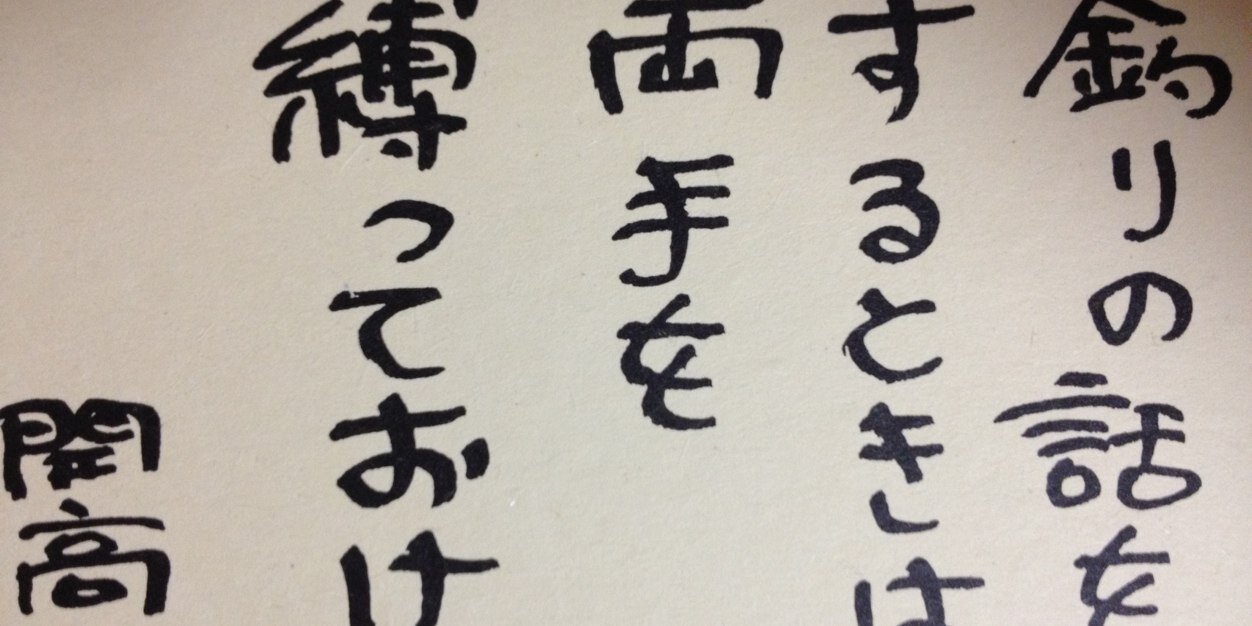 釣りの話を
するときは
両手を
縛っておけ
開高